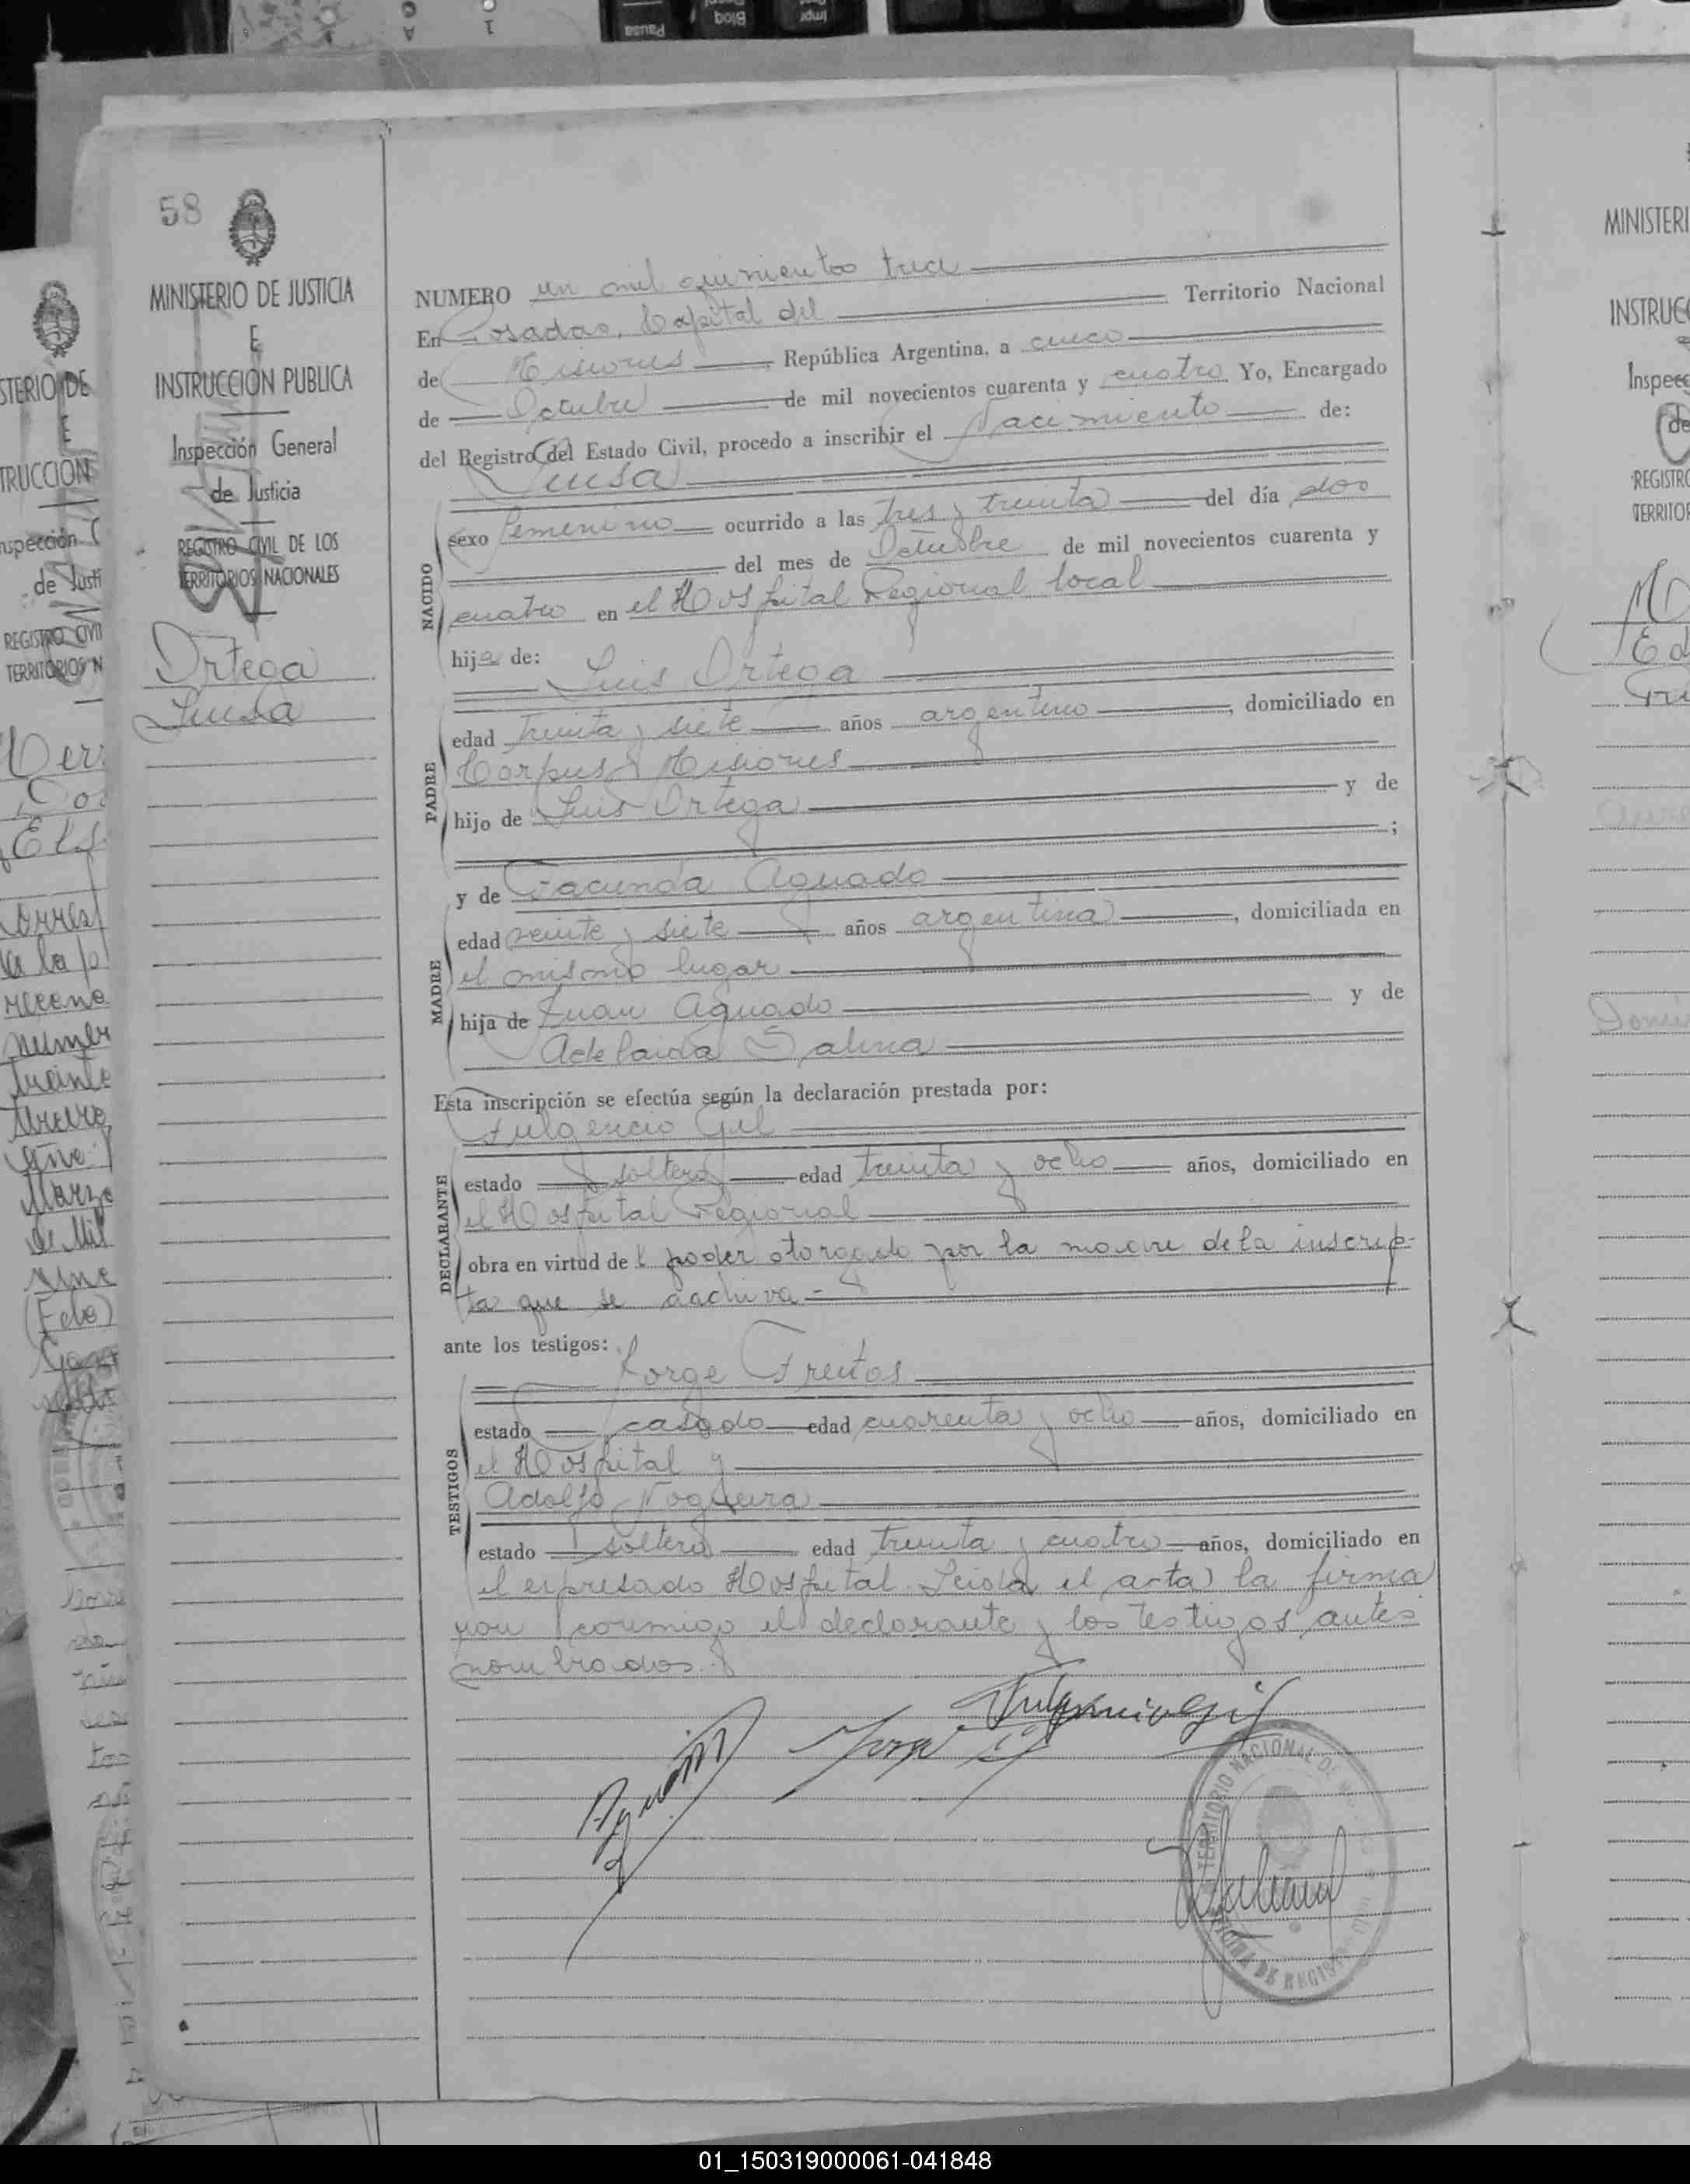 58
MINISTERIO DE JUSTICIA
E
INSTRUCCION PUBLICA
Inspección General
de Justicia
REGISTRO CIVIL DE LOS
TERRITORIOS NACIONALES
Ortega
Luisa
NUMERO un mil quinientos trece
En Posadas, Capital del Territorio Nacional
de Misiones, República Argentina, a cinco
de Octubre de mil novecientos cuarenta y cuatro Yo, Encargado
del Registro del Estado Civil, procedo a inscribir el Nacimiento de:
Luisa
NACIDO
sexo femenino ocurrido a las tres y treinta del día dos
del mes de Octubre de mil novecientos cuarenta y
cuatro en el Hospital Regional local
hija de:
Luis Ortega
PADRE
edad treinta y siete años argentino, domiciliado en
Corpus Misiones
hijo de Luis Ortega y de
;
y de Facunda Aguado
MADRE
edad veinte y siete años argentina, domiciliada en
el mismo lugar
hija de Juan Aguado y de
Adelaida Salina
Esta inscripción se efectúa según la declaración prestada por:
Fulgencio Gil
DECLARANTE
estado soltero edad treinta y ocho años, domiciliado en
el Hospital Regional
obra en virtud del poder otorgado por la madre de la inscrip-
ta que se archiva-
ante los testigos:
Jorge Freitas
TESTIGOS
estado casado edad cuarenta y ocho años, domiciliado en
el Hospital y
Adolfo Nogueira
estado soltero edad treinta y cuatro años, domiciliado en
el expresado Hospital. Leida el acta la firma
ron conmigo el declarante y los testigos antes
nombrados.
Fulgencio Gil
TERRITORIO NACIONAL DE
OFICINA DE REGISTRO CIVIL
MINISTERI
INSTRUCC
Inspecc
de
REGISTRO
TERRITOR
STERIO DE
E
TRUCCION
nspección
de Justi
REGISTRO CIVI
TERRITORIOS N
01_150319000061-041848